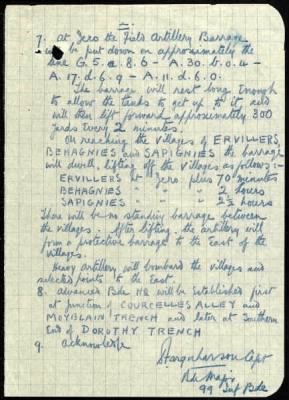 7. At Zero the Field Artillery Barrage
will be put down on approximately the
line G.5.a.8.6 - A.30.b.0.4 -
A.17.d.6.9 - A.11.d.6.0.
The barrage will rest long enough
to allow the tanks to get up to it, and
will then lift forward approximately 300
yards every 2 minutes.
On reaching the villages of ERVILLERS,
BEHAGNIES and SAPIGNIES the barrage
will dwell, lifting off the villages as follows:-
ERVILLERS at Zero plus 70 minutes
BEHAGNIES " " " 2 hours
SAPIGNIES " " " 2½ hours
There will be no standing barrage between
the villages. After lifting, the artillery will
form a protective barrage to the East of the
villages.
Heavy Artillery will bombard the villages and
selected points to the East.
8. Advanced Bde HQ will be established first
at junction of COURCELLES ALLEY and
MOYBLAIN TRENCH and later at Southern
End of DOROTHY TRENCH
9. Acknowledge
Farquharson Capt
Bde Major
99 Inf Bde